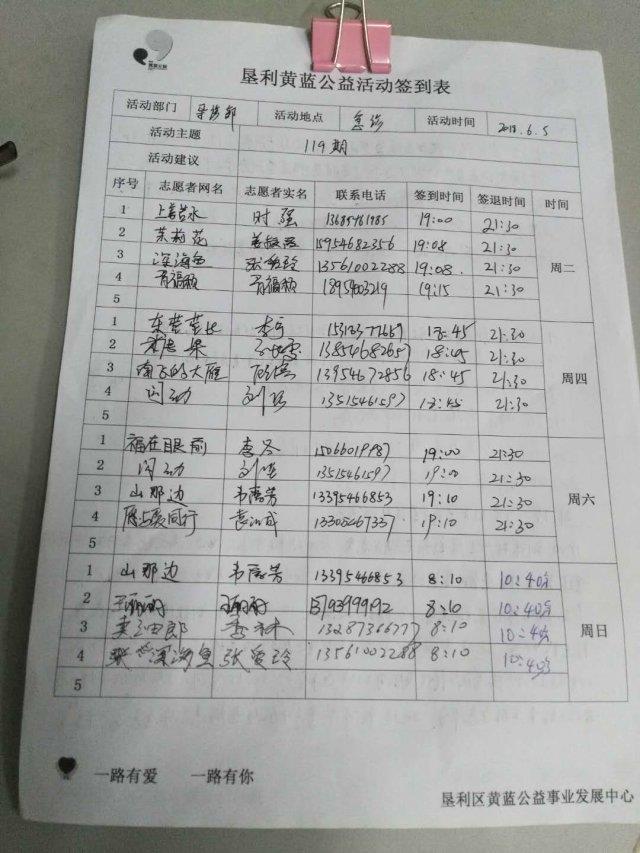 垦利黄蓝公益活动签到表
活动部门 导诊部 活动地点 急诊 活动时间 2018.6.5
活动主题 119期
活动建议
序号 志愿者网名 志愿者实名 联系电话 签到时间 签退时间 时间
1 上善若水 时强 13685461985 19:00 21:30
2 茉莉花 15954682356 19:08 21:30
3 深海鱼 张爱玲 13561002288 19:08 21:30
周二
4 有福秋 有福秋 18954603219 19:15 21:30
5
1 李宁 21:45 21:30
2 13854682657 18:45 21:30
3 南飞的大雁 13954672856 18:45 21:30
周四
4 闪动 13515461597 18:45 21:30
5
1 福在眼前 李冬 19:00 21:30
2 闪动 13515461597 19:00 21:30
3 山那边 韦德芳 13395466853 19:10 21:30
周六
4 同行 13305467337 19:10 21:30
5
1 山那边 韦德芳 13395466853 8:10 10:40
2 王丽丽 王丽丽 8:10 10:40
3 13287366777 8:10 10:40
周日
4 深海鱼 张爱玲 13561002288 8:10 10:40
5
一路有爱 一路有你
垦利区黄蓝公益事业发展中心